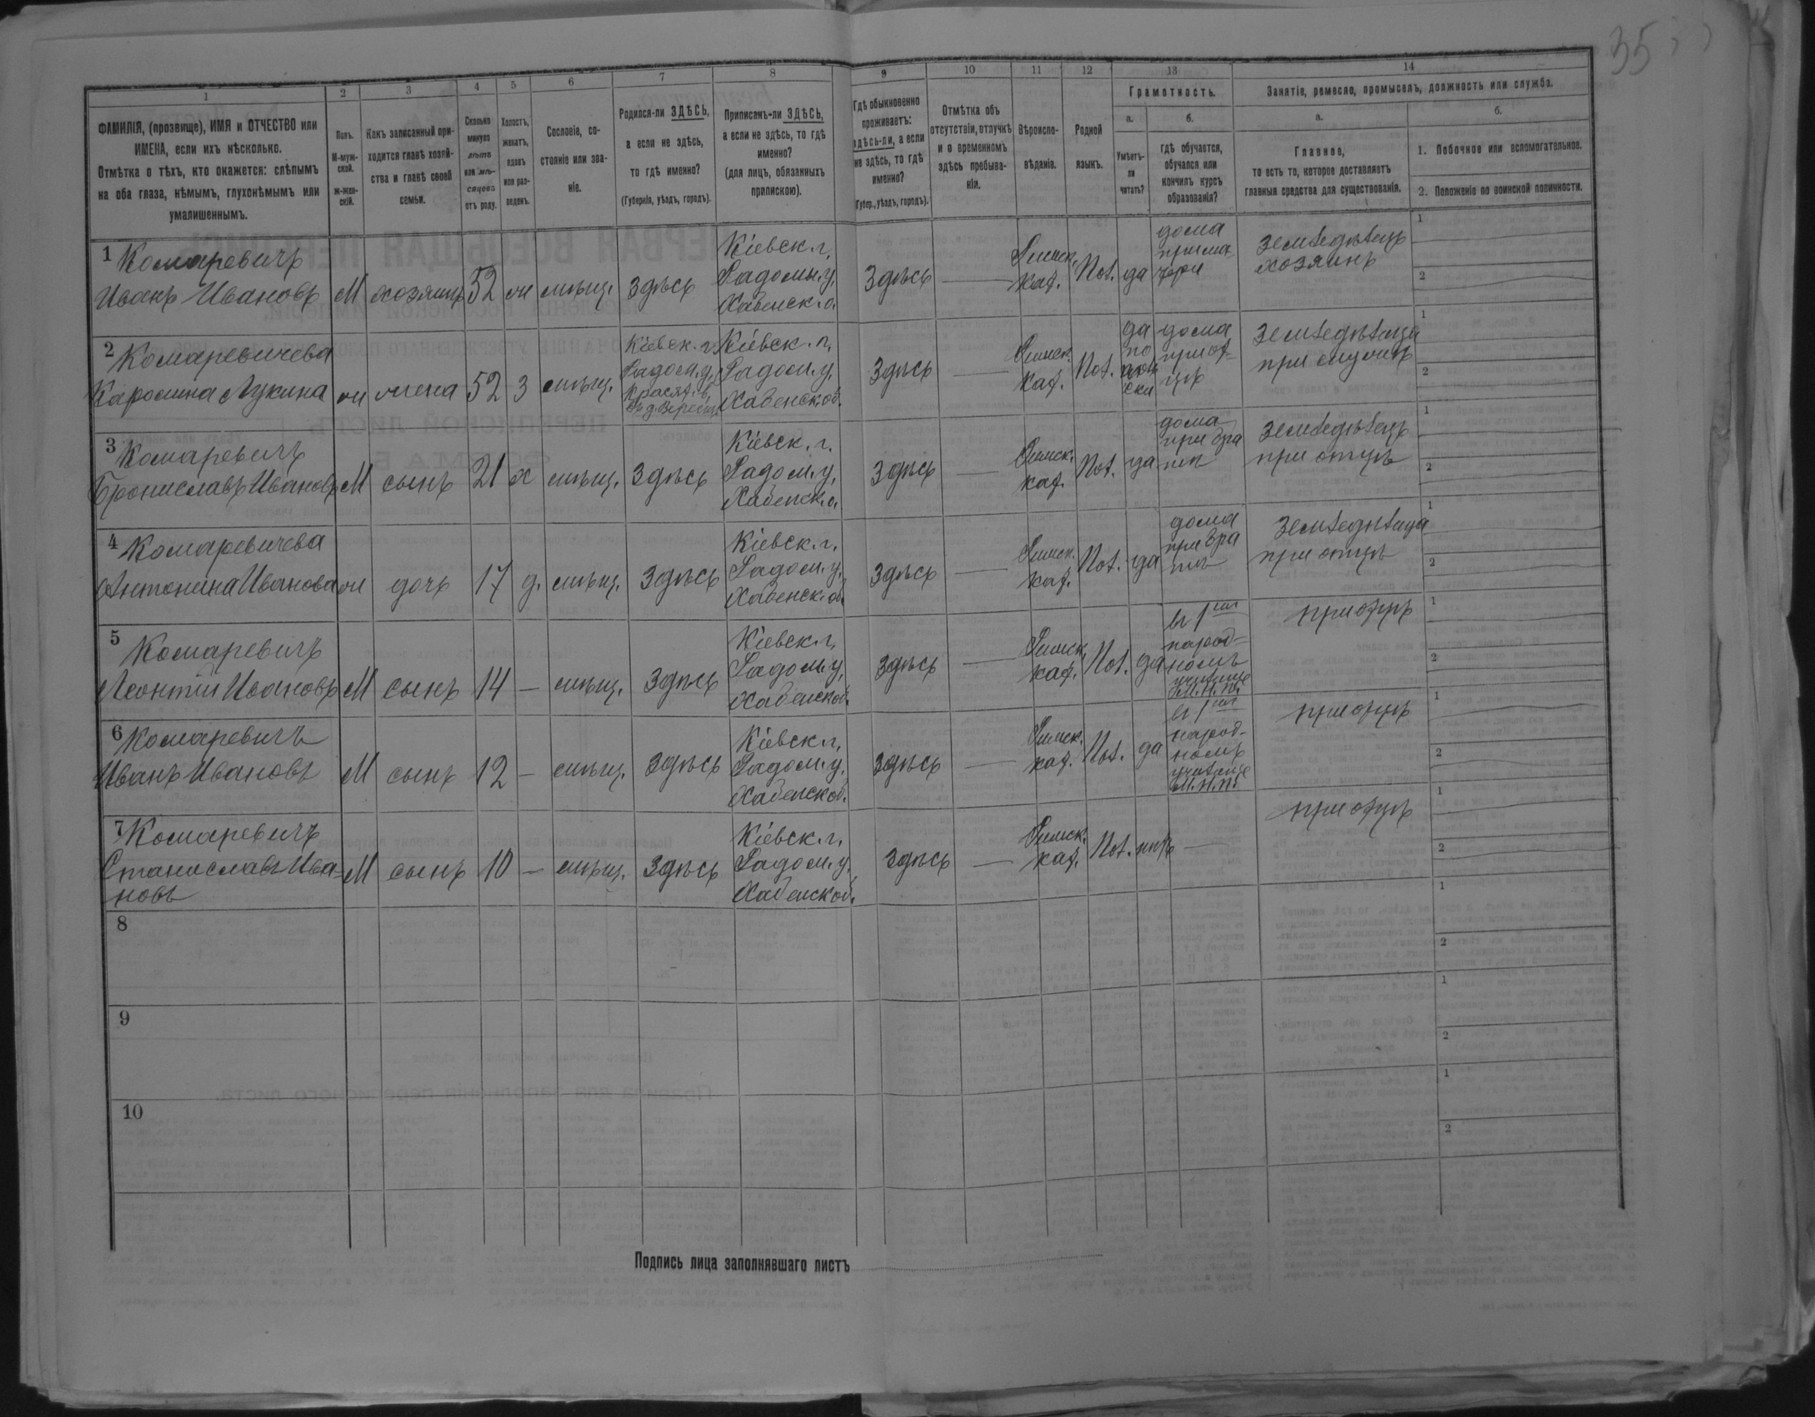 35
1 2 3 4 5 6 7 8 9 10 11 12 13 14
ФАМИЛІЯ, (прозвище), ИМЯ и ОТЧЕСТВО или
ИМЕНА, если ихъ нѣсколько.
Отмѣтка о тѣхъ, кто окажется: слѣпымъ
на оба глаза, нѣмымъ, глухонѣмымъ или
умалишеннымъ.
Полъ.
М-муж-
ской.
ж-жен-
скій.
Какъ записанный при-
ходится главѣ хозяй-
ства и главѣ своей
семьи.
Сколько
минуло
лѣтъ
или мѣ-
сяцевъ
отъ роду.
Холостъ,
женатъ,
вдовъ
или раз-
веденъ.
Сословіе, со-
стояніе или зва-
ніе.
Родился-ли ЗДѢСЬ,
а если не здѣсь,
то гдѣ именно?
(Губернія, уѣздъ, городъ).
Приписанъ-ли ЗДѢСЬ,
а если не здѣсь, то гдѣ
именно?
(для лицъ, обязанныхъ
припискою).
Гдѣ обыкновенно
проживаетъ:
здѣсь-ли, а если
не здѣсь, то гдѣ
именно?
(Губер., уѣздъ, городъ).
Отмѣтка объ
отсутствіи, отлучкѣ
и о временномъ
здѣсь пребыва-
ніи.
Вѣроиспо-
вѣданіе.
Родной
языкъ.
Грамотность.
а.
Умѣетъ-
ли
читать?
б.
гдѣ обучается,
обучался или
кончилъ курсъ
образованія?
Занятіе, ремесло, промыселъ, должность или служба.
а.
Главное,
то есть то, которое доставляетъ
главныя средства для существованія.
б.
1. Побочное или вспомогательное.
2. Положеніе по воинской повинности.
1 Комаревичъ
Иванъ Ивановъ М хозяинъ 52 ж мѣщ. Здѣсь
Кіевск. г,
Радом. у,
Хабенск. о.
Здѣсь —
Римск.
каф. Пол. да
дома
Земледѣлецъ
хозяинъ
1
2
2 Комаревичева
Каролина Лукина ж жена 52 з мѣщ.
Кіевск. г,
Радом. у,
Кіевск. г,
Радом. у,
Хабенск. об.
Здѣсь —
Римск.
каф. Пол.
да
по
дома
при от
цѣ
Земледѣлица
при мужѣ
1
2
3 Комаревичъ
Брониславъ Ивановъ М сынъ 21 х мѣщ. Здѣсь
Кіевск. г.
Радом. у,
Хабенск. о.
Здѣсь —
Римск.
каф. Пол. да
дома
при бра
тѣ
Земледѣлецъ
при отцѣ
1
2
4 Комаревичева
Антонина Иванова ж дочь 17 д. мѣщ. Здѣсь
Кіевск. г.
Радом. у,
Хабенск. об.
Здѣсь —
Римск.
каф. Пол. да
дома
при бра
тѣ
Земледѣлица
при отцѣ
1
2
5
Комаревичъ
Леонтій Ивановъ М сынъ 14 — мѣщ. Здѣсь
Кіевск. г,
Радом. у,
Хабенск. об.
Здѣсь —
Римск.
каф. Пол. да
въ 1мъ
народ-
номъ
училище
М.Н.Пр.
при отцѣ
1
2
6 Комаревичъ
Иванъ Ивановъ М сынъ 12 — мѣщ. Здѣсь
Кіевск. г,
Радом. у,
Хабенск. об.
Здѣсь —
Римск.
каф. Пол. да
въ 1мъ
народ-
номъ
училище
М.Н.Пр.
при отцѣ
1
2
7 Комаревичъ
Станиславъ Ива
новъ М сынъ 10 — мѣщ. Здѣсь
Кіевск. г,
Радом. у,
Хабенск. об.
Здѣсь —
Римск.
каф. Пол. нѣтъ —
при отцѣ
1
2
8
1
2
9
1
2
10
1
2
Подпись лица заполнявшаго листъ